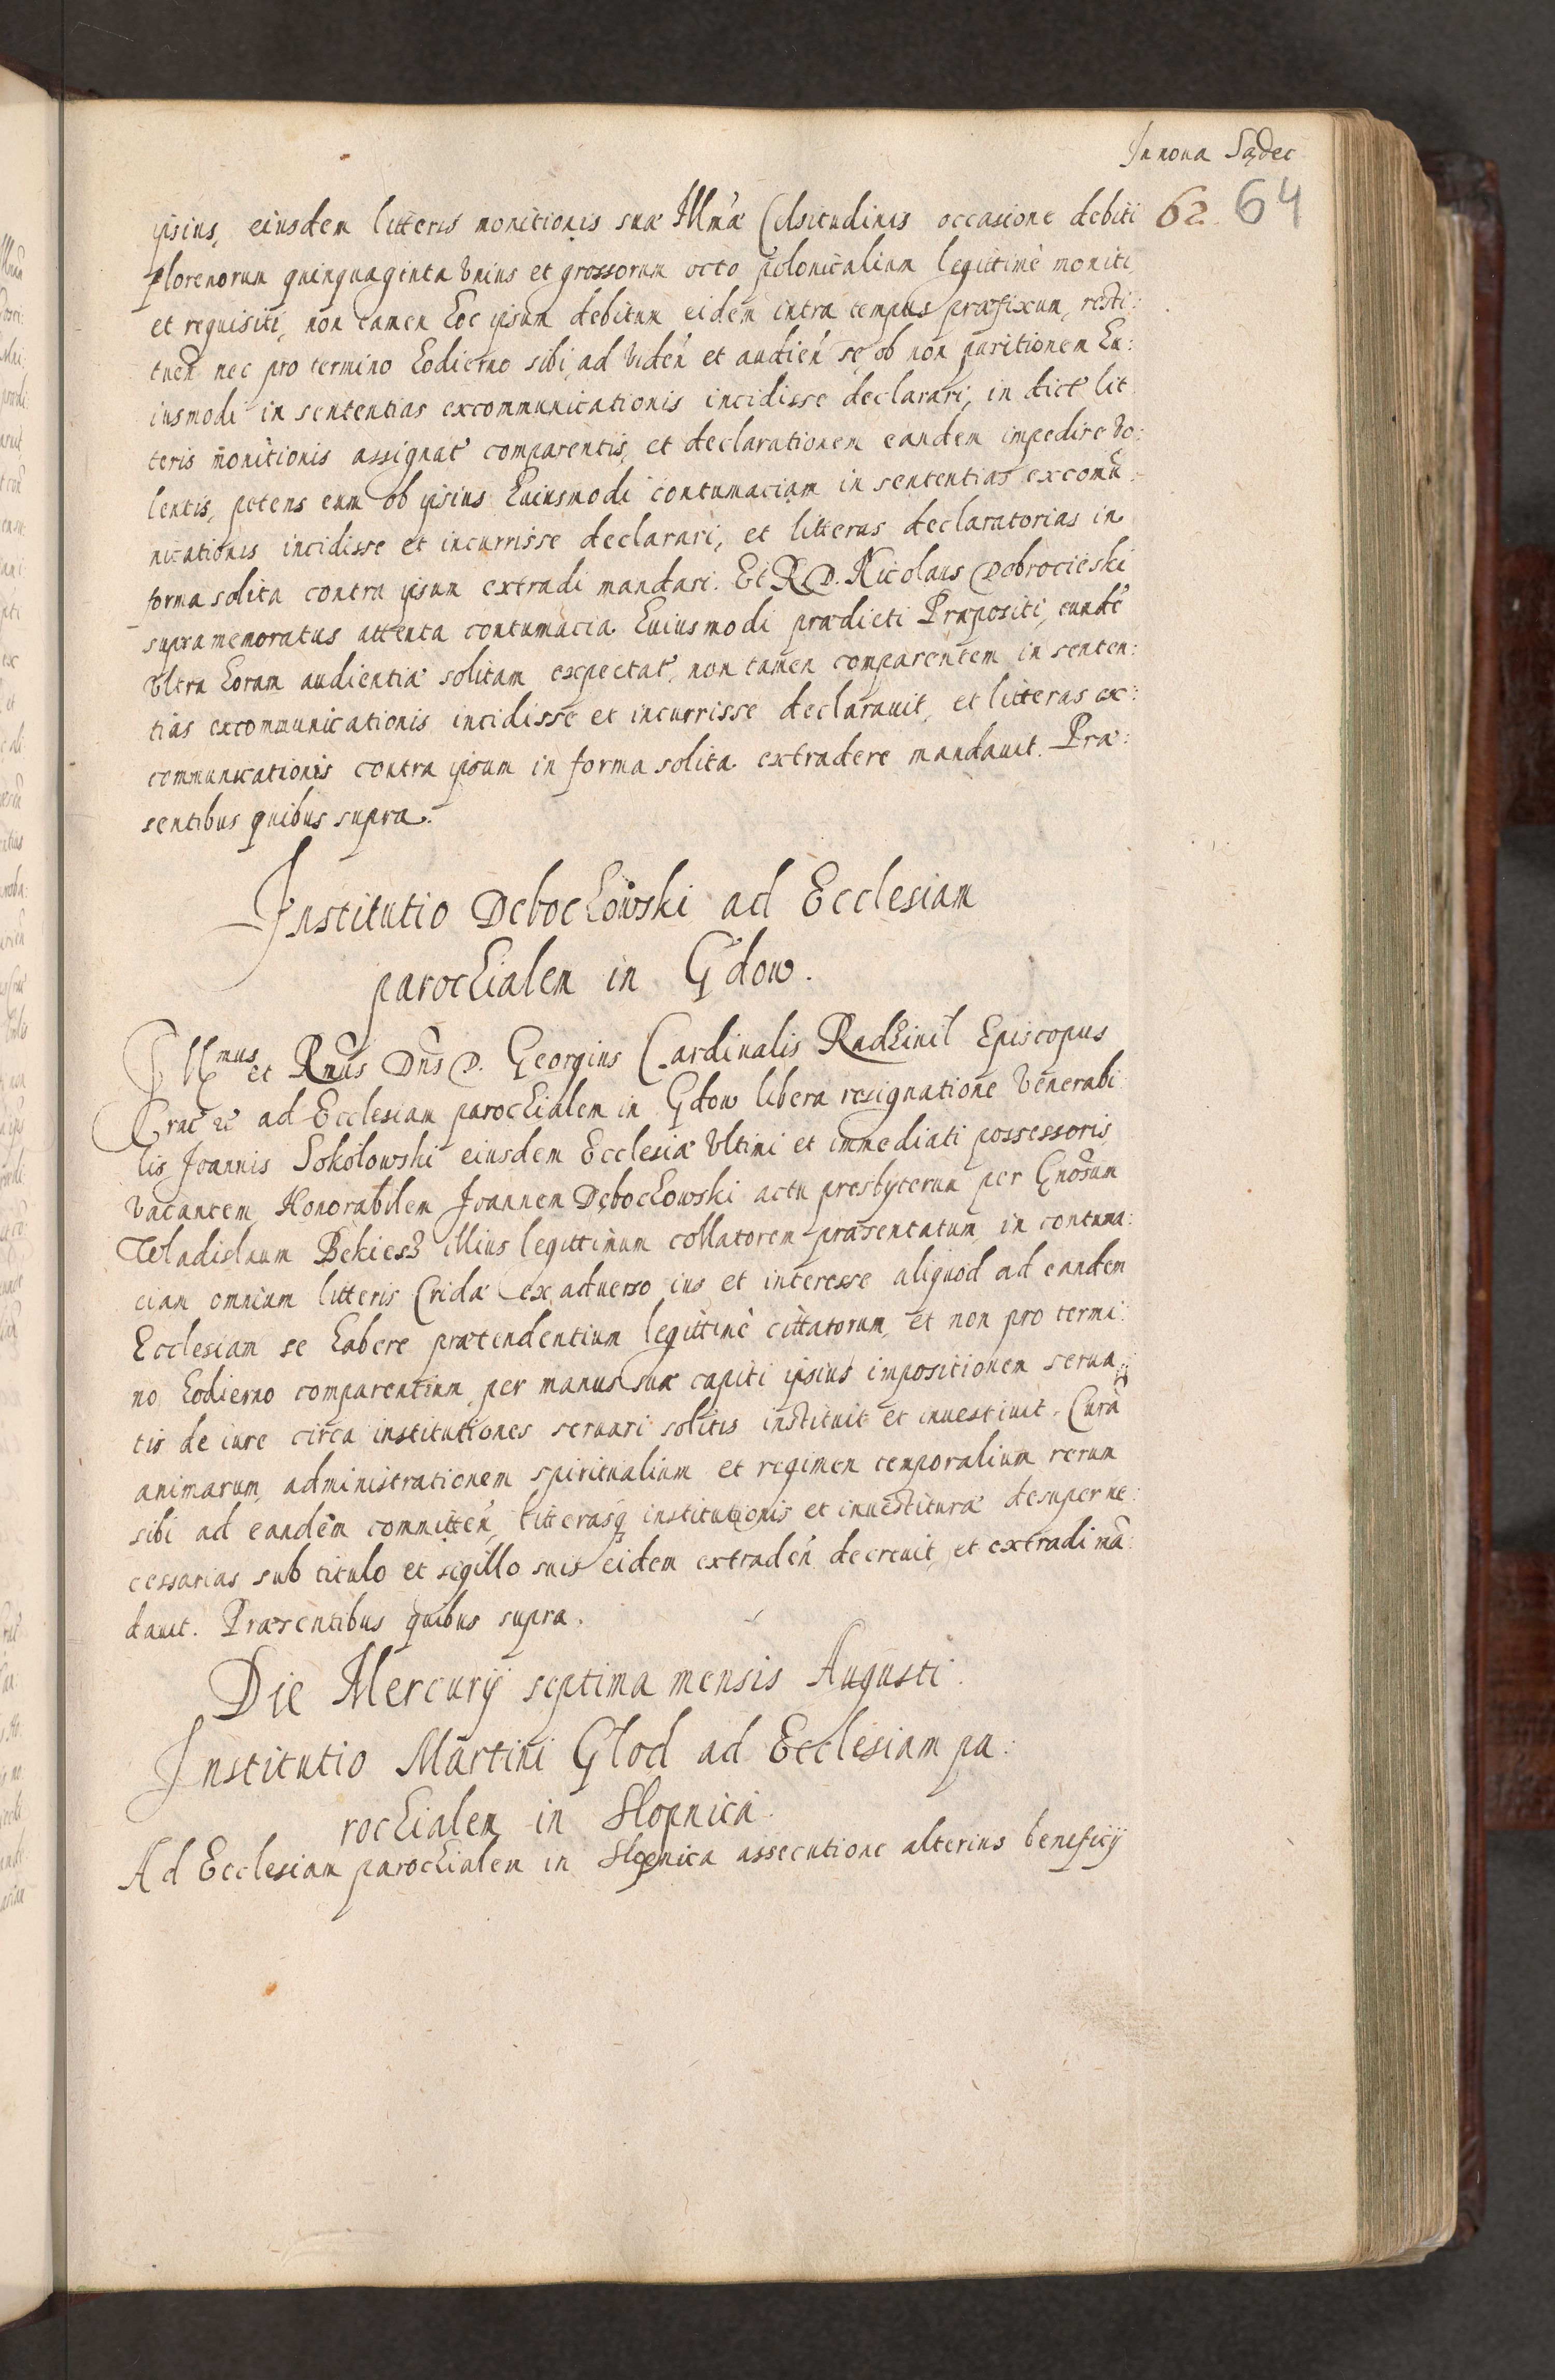 In noua Sądec
62. 64
ipsius, eiusdem litteris monitionis suæ Illmæ Celsitudinis occasione debiti
florenorum quinquaginta vnius et grossorum octo polonicalium legittimè moniti,
et requisiti, non tamen hoc ipsum debitum eidem intra tempus præfixum, resti:
tuen̄ nec pro termino hodierno sibi, ad viden̄ et audien̄ se, ob non paritionem hu:
iusmodi in sententias excommunicationis incidisse declarari, in dict̄ lit
teris monitionis assignat̄ comparentis, et declarationem eandem impedire vo:
lentis, petens eum ob ipsius huiusmodi contumaciam in sententias excomū:
nicationis incidisse et incurrisse declarari, et litteras declaratorias in
forma solita contra ipsum extradi mandari. Et R. D. Nicolaus Dobrocieski
supramemoratus attenta contumacia huiusmodi prædicti Præpositi, eundē
vltra horam audientiæ solitam expectat̄, non tamen comparentem in senten:
tias excommunicationis incidisse et incurrisse declarauit, et litteras ex:
communicationis contra ipsum in forma solita extradere mandauit. Præ:
sentibus quibus supra.
Institutio Dębochowski ad Ecclesiam
parochialem in Gdow.
Illmus et Rn̄us Dn̄s D. Georgius Cardinalis Radziuil Episcopus
Crac̄ etc̄ ad Ecclesiam parochialem in Gdow libera resignatione Venerabi
lis Joannis Sokołowski eiusdem Ecclesiæ vltimi et immediati possessoris,
vacantem, Honorabilem Joannem Dębochowski actu presbyterum per Gn̄osum
Wladislaum Bekiesz illius legittimum collatorem præsentatum, in contuma:
ciam omnium litteris Cridæ ex aduerso ius et interesse aliquod ad eandem
Ecclesiam se habere prætendentium legittimè cittatorum, et non pro termi:
no hodierno comparentium, per manus suæ capiti ipsius impositionem serua:
tis de iure circa institutiones seruari solitis instituit et inuestiuit. Curā
animarum, administrationem spiritualium et regimen temporalium rerum
sibi ad eandem committen̄, litterasq3 institutionis et inuestituræ desuper ne:
cessarias sub titulo et sigillo suis eidem extraden̄ decreuit, et extradi mā:
dauit. Præsentibus quibus supra.
Die Mercurij septima mensis Augusti.
Institutio Martini Glod ad Ecclesiam pa:
rochialem in Słopnica.
Ad Ecclesiam parochialem in Słopnica assecutione alterius beneficij